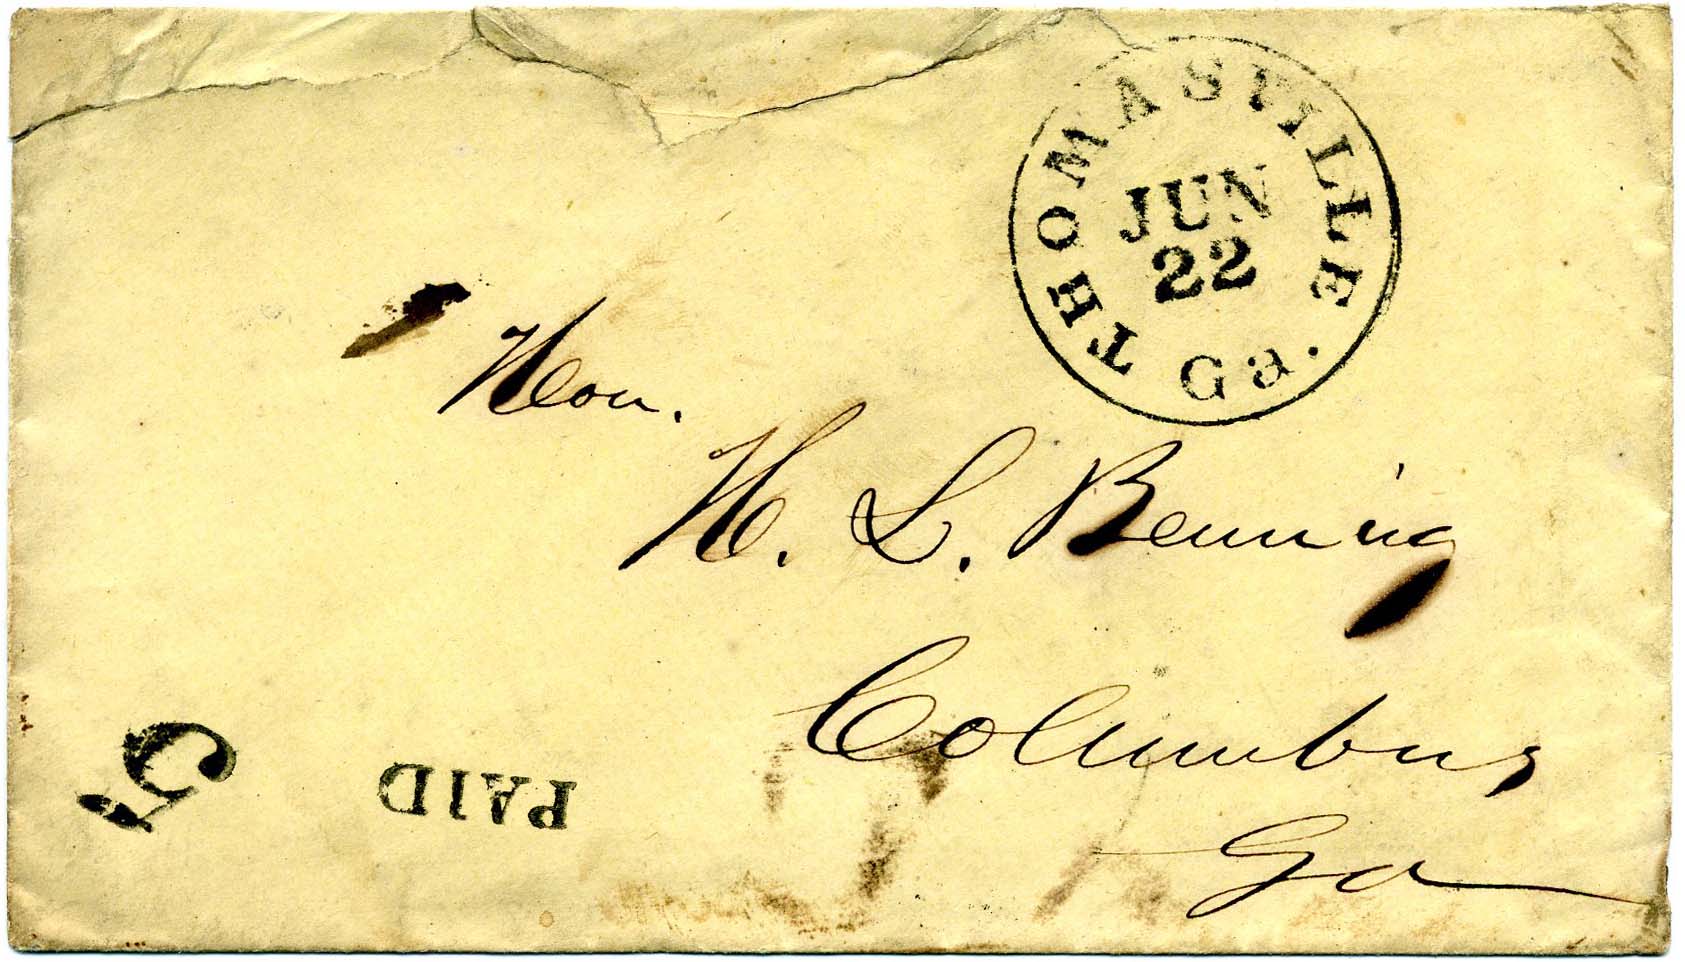 THOMASVILLE Ga.
JUN
22
Hon.
H. L. Benning
Columbus,
Ga
5
PAID